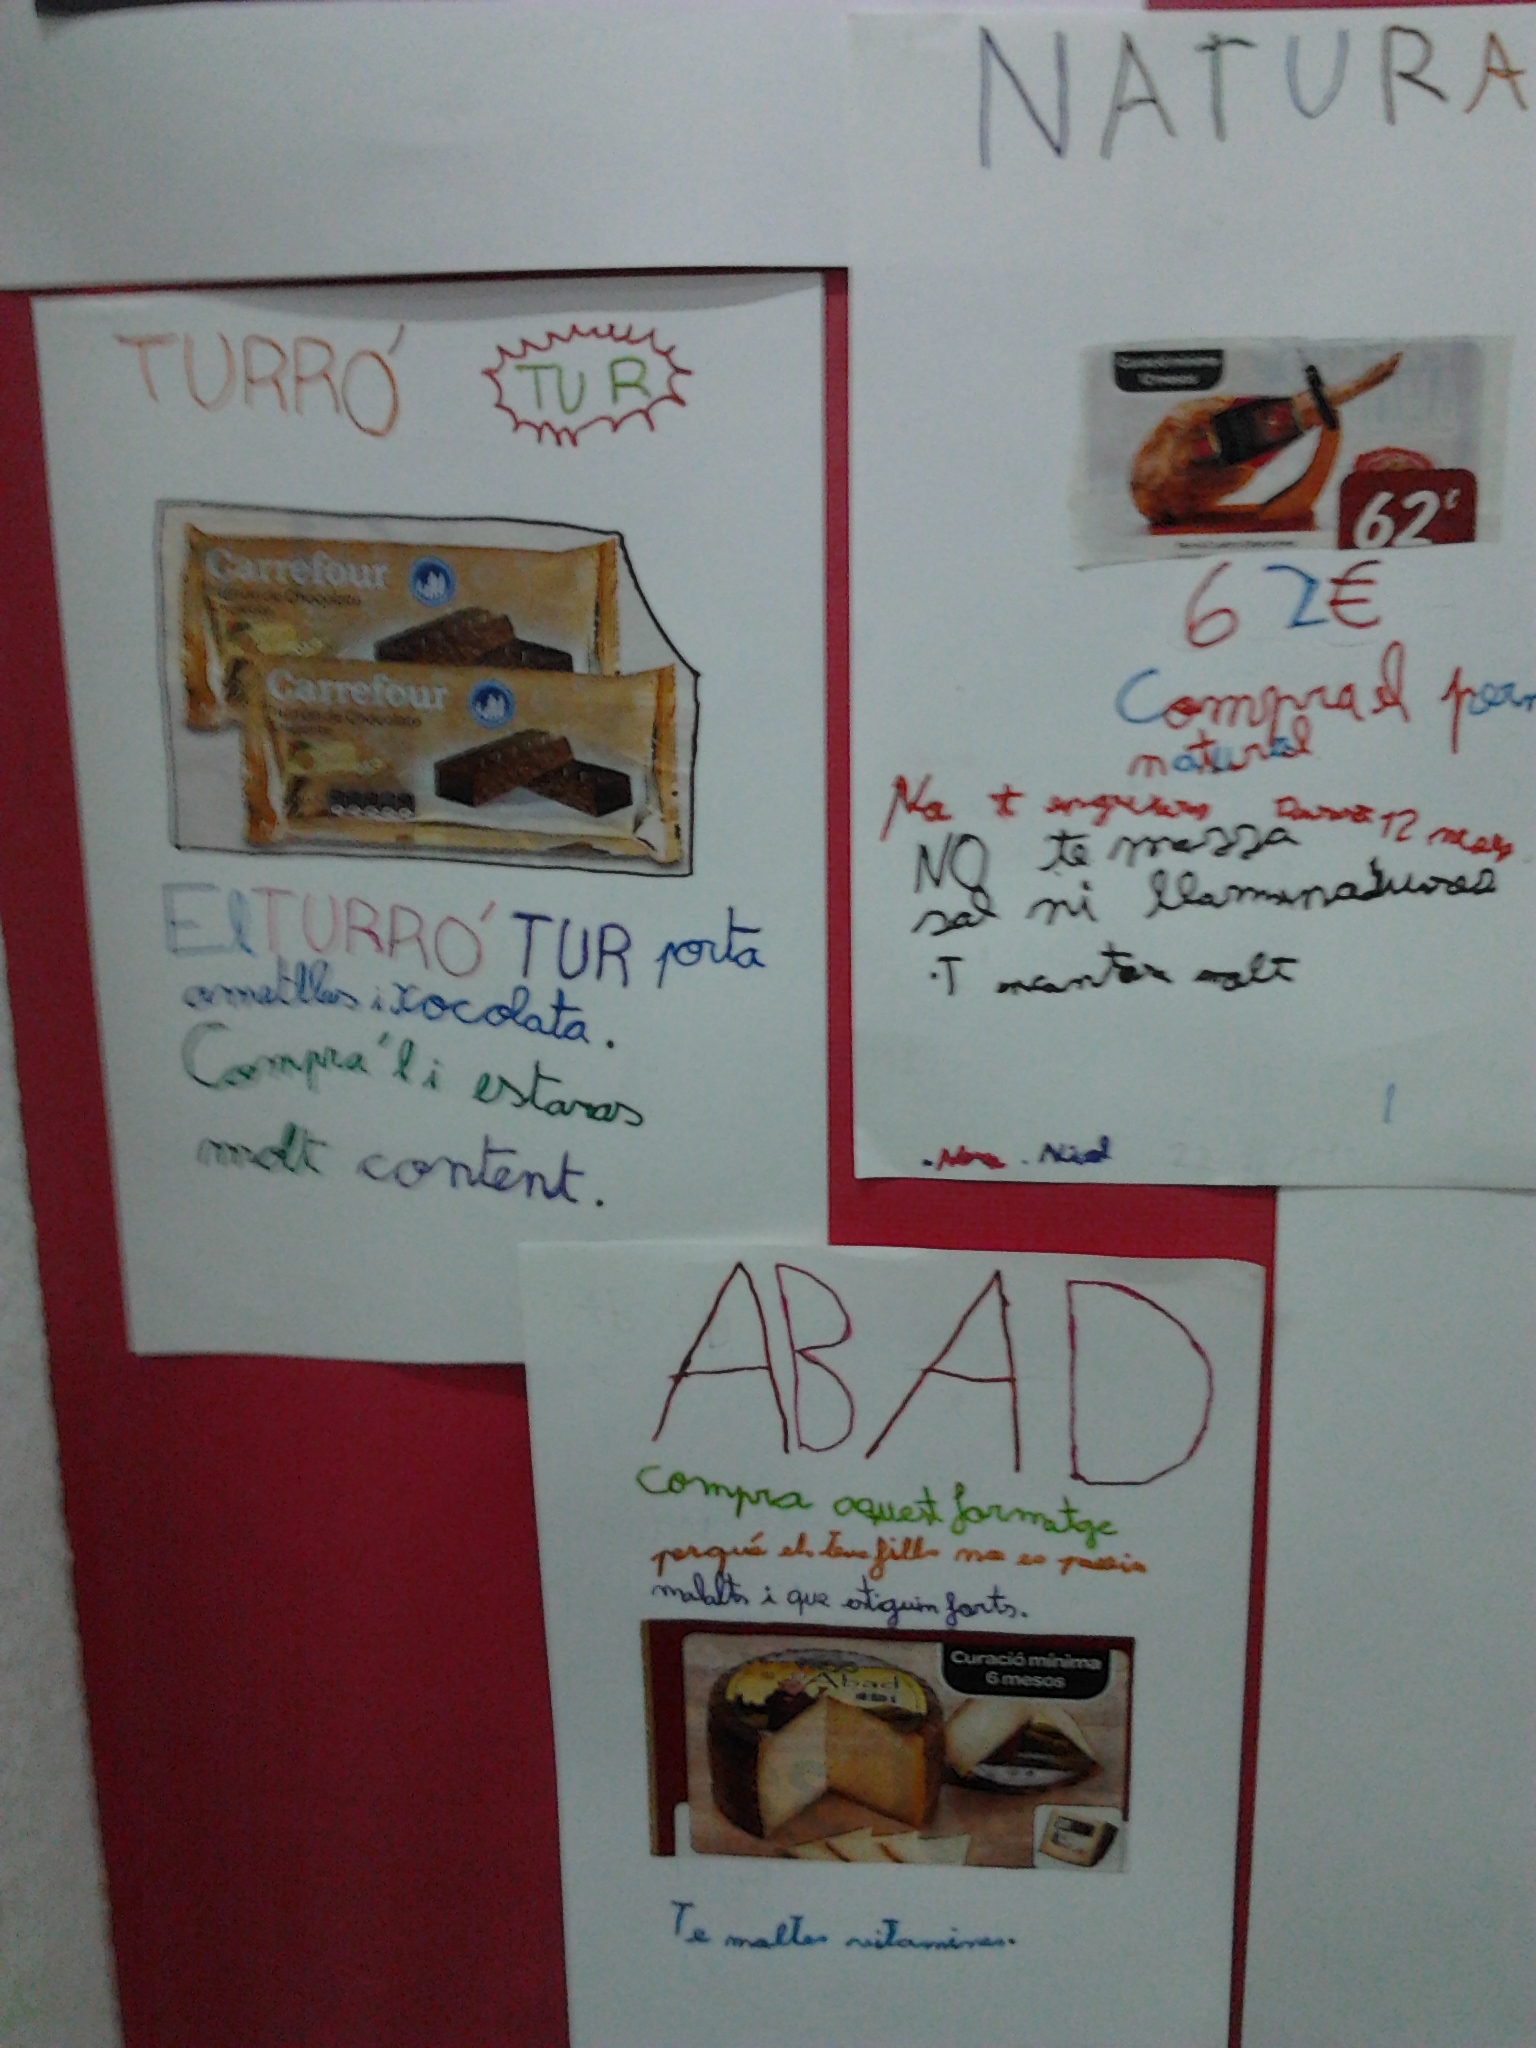 TURRÓ
TUR
Carrefour
Carrefour
El TURRÓ TUR porta
ametlles i xocolata.
Compra'l i estaras
molt content.
NATURA
62€
62€
Compra el pern
natural
No t engreixes 12 mesos
NO te massa
sal ni llaminadures
.T encantara molt
.Nora .Nicol
ABAD
compra aquest formatge
perqué els teus fills no es posin
malalts i que estiguin forts.
Abad
Curació mínima
6 mesos
Te moltes vitamines.